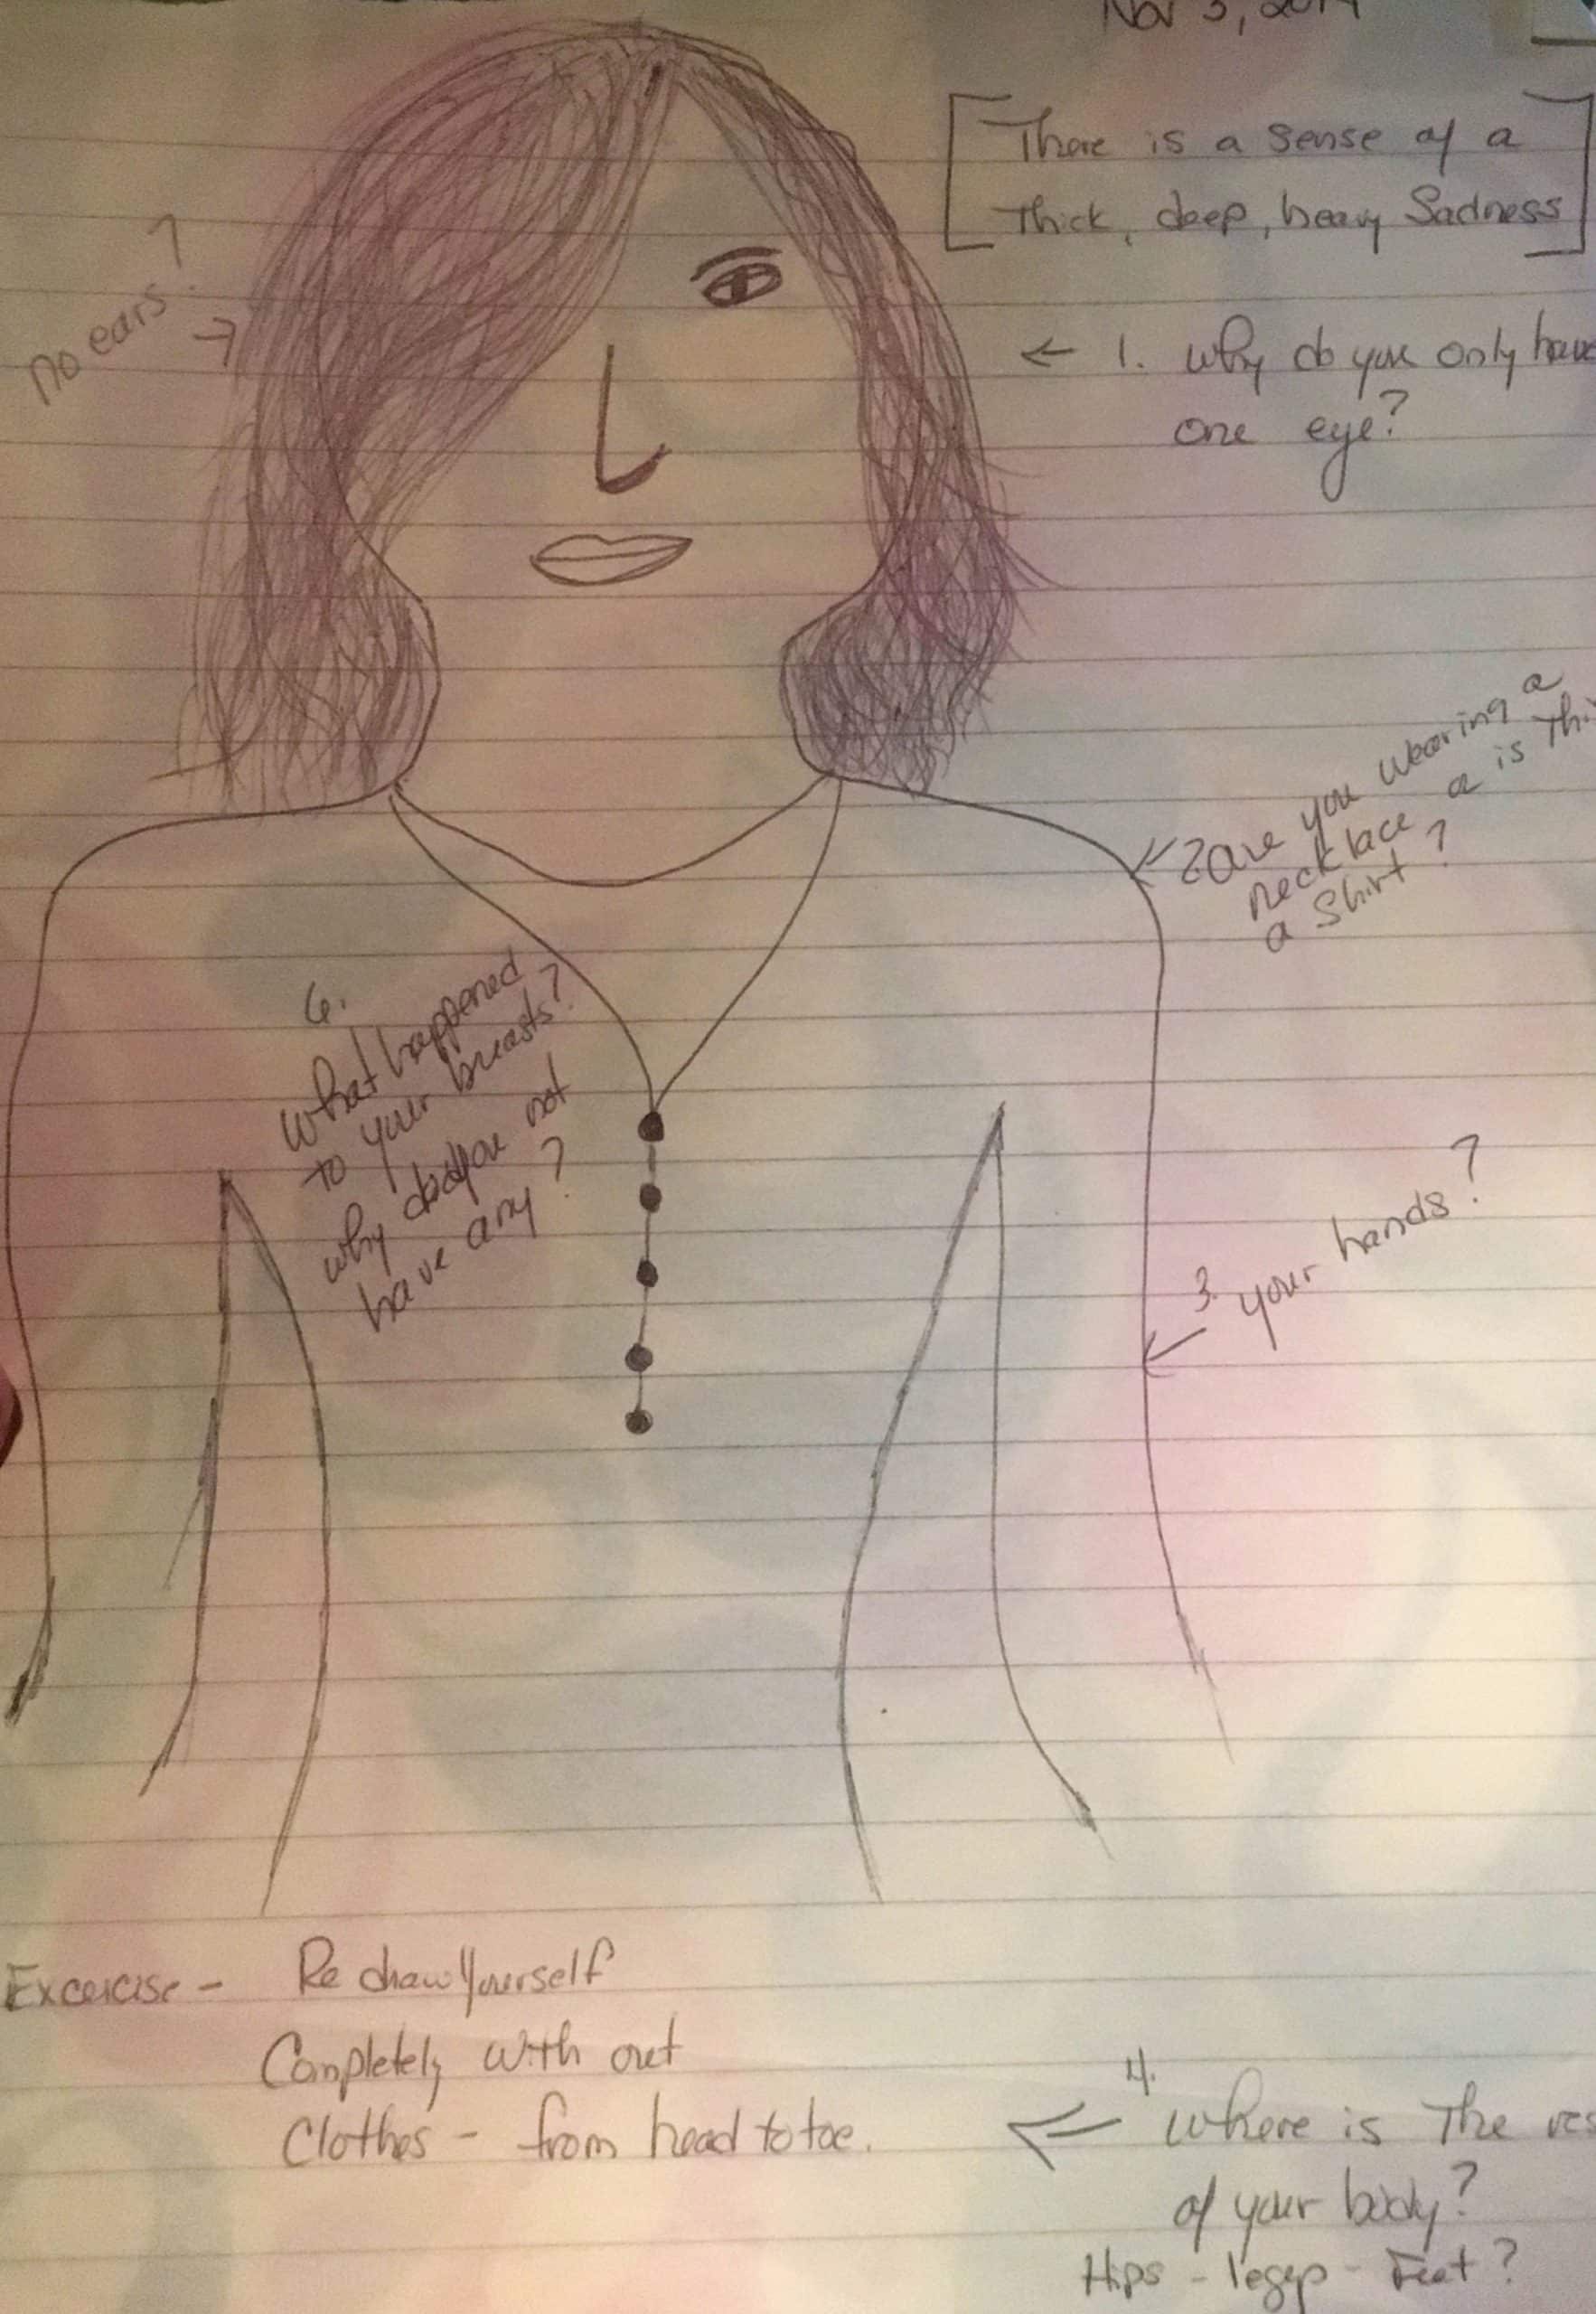 Nov 5, 2014
[There is a sense of a
Thick, deep, heavy Sadness]
No ears?
← 1. Why do you only have
one eye?
2 are you wearing a
necklace or is Thi
a Shirt?
6.
What happened
to your breasts?
why do you not
have any?
3. your hands?
Excercise - Re draw Yourself
Completely with out
Clothes - from head to toe.
4. Where is The res
of your body?
Hips - legs - Feet?